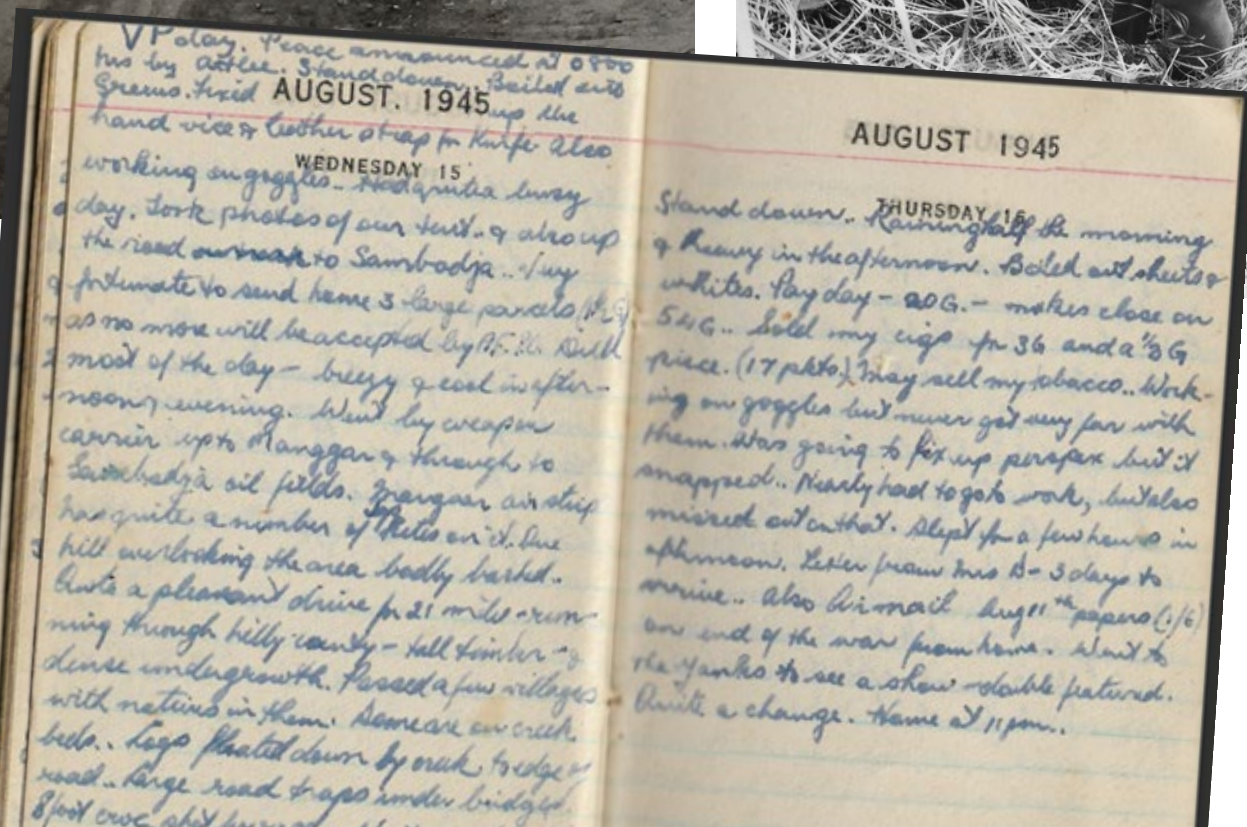 VP day. Peace announced at 0800
hrs by Attlee. Stand down. Boiled out
Greens. Fixed up the
AUGUST. 1945
hand vice & leather strap for Knife Also
WEDNESDAY 15
working on goggles.. Had quite a busy
day. Took photos of our tent.. & also up
the road to Sambodja.. Very
fortunate to send home 3 large parcels
as no more will be accepted by Dull
most of the day - breezy & cool in after-
noon & evening. Went by weapon
carrier up to Manggar & through to
Sambodja oil fields. Manggar air strip
has quite a number of on it. One
hill overlooking the area badly bashed..
Quite a pleasant drive for 21 miles - run-
ning through hilly county - tall timber - &
dense undergrowth. Passed a few villages
with natives in them. Some are on creek
beds.. Logs floated down by creek to edge of
road.. Large road traps under bridges.
8 foot croc shot
AUGUST 1945
THURSDAY 16
Stand down.. Raining half the morning
& heavy in the afternoon. Boiled out sheets &
whites. Pay day - 20G. - makes close on
54G.. Sold my cigs for 3G and a ½G
piece. (17 pkts) May sell my tobacco.. Work-
ing on goggles but never got very far with
them. Was going to fix up perspex but it
snapped.. Nearly had to go to work, but also
missed out on that. Slept for a few hours in
afternoon. Letter from Mrs D - 3 days to
arrive.. Also Airmail Aug 11th papers (1/6)
on end of the war from home. Went to
the Yanks to see a show - double featured.
Quite a change. Home at 11pm..